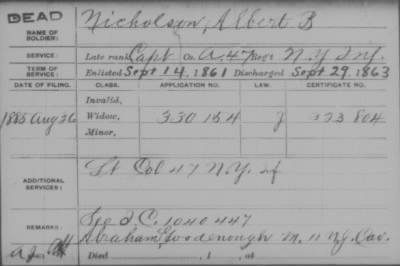 DEAD
NAME OF SOLDIER:
Nicholson, Albert B
SERVICE:
Late rank Capt Co. A. 47 Reg't N.Y Inf.
TERM OF SERVICE:
Enlisted Sept 14, 1861 Discharged Sept 29, 1863
DATE OF FILING. CLASS. APPLICATION NO. LAW. CERTIFICATE NO.
Invalid,
1885 Aug 26 Widow, 330 164 323 804
Minor,
ADDITIONAL SERVICES:
Lt Col 47 N.Y. Inf
REMARKS:
See I. C. 1040 447
Abraham Goodenough M. 11 N.Y. Cav.
Died , 1 , at